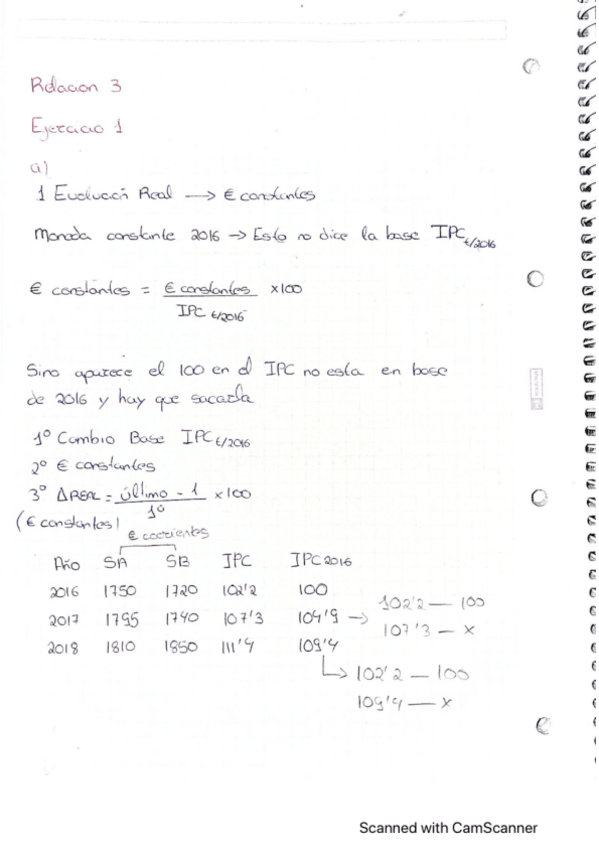 Relacion 3
Ejercicio 1
a)
1 Evolución Real → € constantes
Moneda constante 2016 → Esto no dice la base IPC t/2016
€ constantes = € constantes / IPC t/2016 x100
Sino aparece el 100 en el IPC no esta en base
de 2016 y hay que sacarla
1º Cambio Base IPC t/2016
2º € constantes
3º Δ REAL = último - 1 / 1º x100
(€ constantes)
€ corrientes
Año SA SB IPC IPC 2016
2016 1750 1720 102'2 100
2017 1795 1740 107'3 104'9 → 102'2 — 100
107'3 — x
2018 1810 1850 111'4 109'4
↳ 102'2 — 100
109'4 — x
Scanned with CamScanner